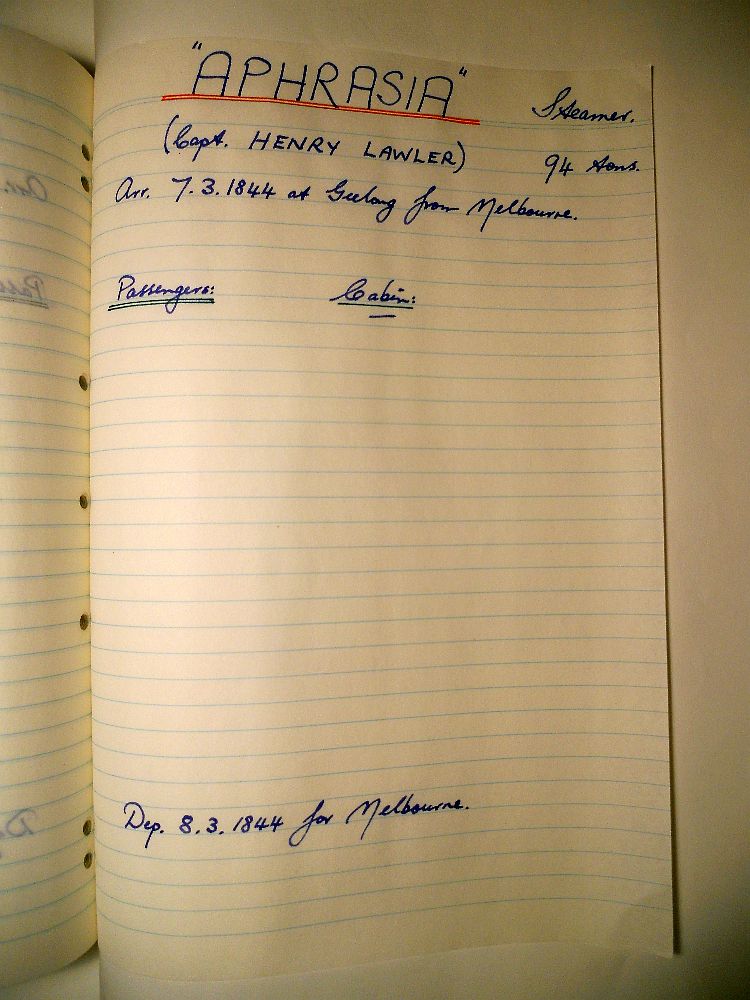 "APHRASIA" Steamer.
(Capt. HENRY LAWLER) 94 tons.
Arr. 7.3.1844 at Geelong from Melbourne.
Passengers: Cabin:
Dep. 8.3.1844 for Melbourne.